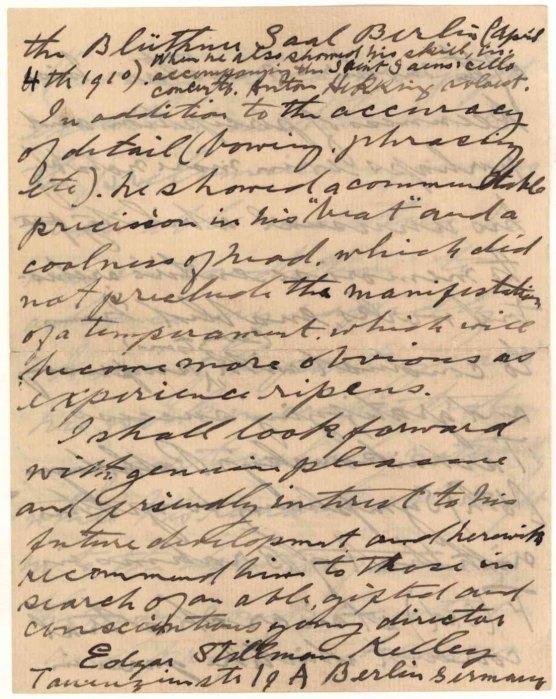 the Blüthner Saal Berlin (April
4th 1910). When he also showed his skill in
accompanying the Saint Saens cello
concerto. Anton Hekking soloist.
In addition to the accuracy
of detail (bowing, phrasing
etc). he showed a commendable
precision in his "beat" and a
coolness of head. which did
not preclude the manifestation
of a temperament. which will
become more obvious as
experience ripens.
I shall look forward
with genuine pleasure
and friendly interest to his
future development and herewith
recommend him to those in
search of an able, gifted and
conscientious young director
Edgar Stillman Kelley
Tauenzienstr 19 A Berlin Germany